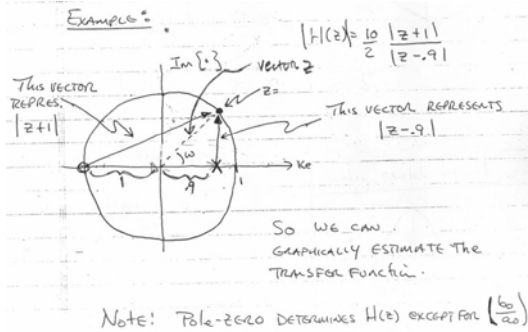 EXAMPLE:
|H(z)|= 10/2 |z+1|/|z-.9|
Im{·}
VECTOR Z
z=
THIS VECTOR
REPRES.
|z+1|
THIS VECTOR REPRESENTS
|z-.9|
ω
Re
1
.9
1
SO WE CAN
GRAPHICALLY ESTIMATE THE
TRANSFER FUNCTION.
NOTE! POLE-ZERO DETERMINES H(z) EXCEPT FOR (b0/a0)